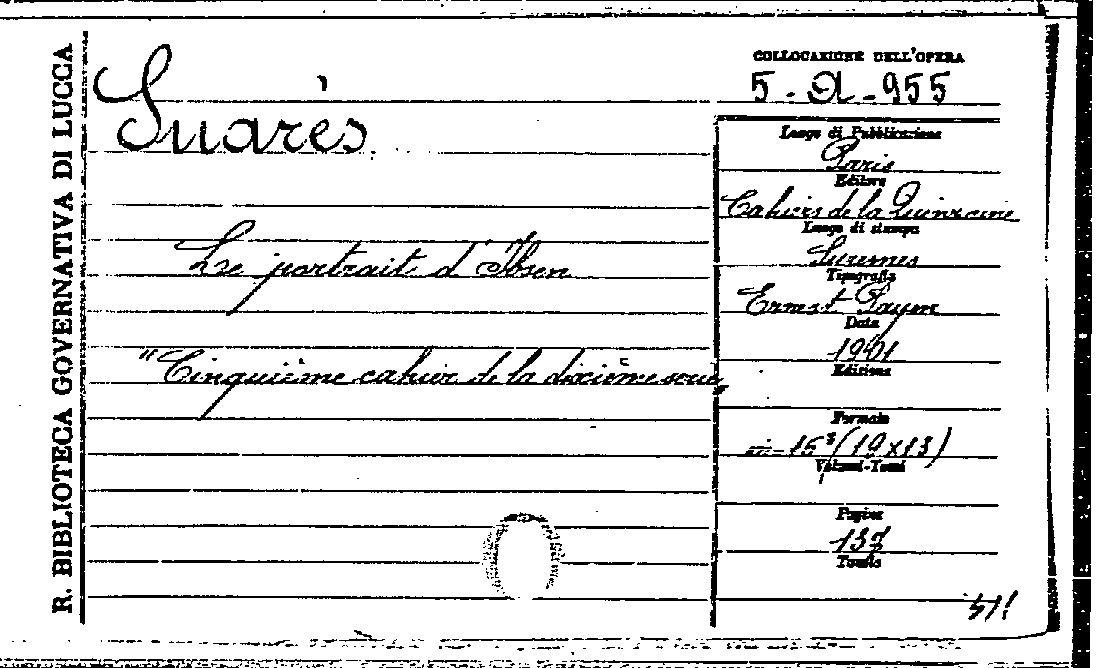 R. BIBLIOTECA GOVERNATIVA DI LUCCA
COLLOCAZIONE DELL'OPERA
5-A-955
Suarès
Luogo di Pubblicazione
Paris
Editore
Cahiers de la Quinzaine
Luogo di stampa
Suresnes
Le portrait d'Ibsen
Tipografia
Ernest Payen
Data
"Cinquième cahier de la dixième série"
Edizione
Formato
in-16° (19x13)
Volumi-Tomi
Pagine
Tavole